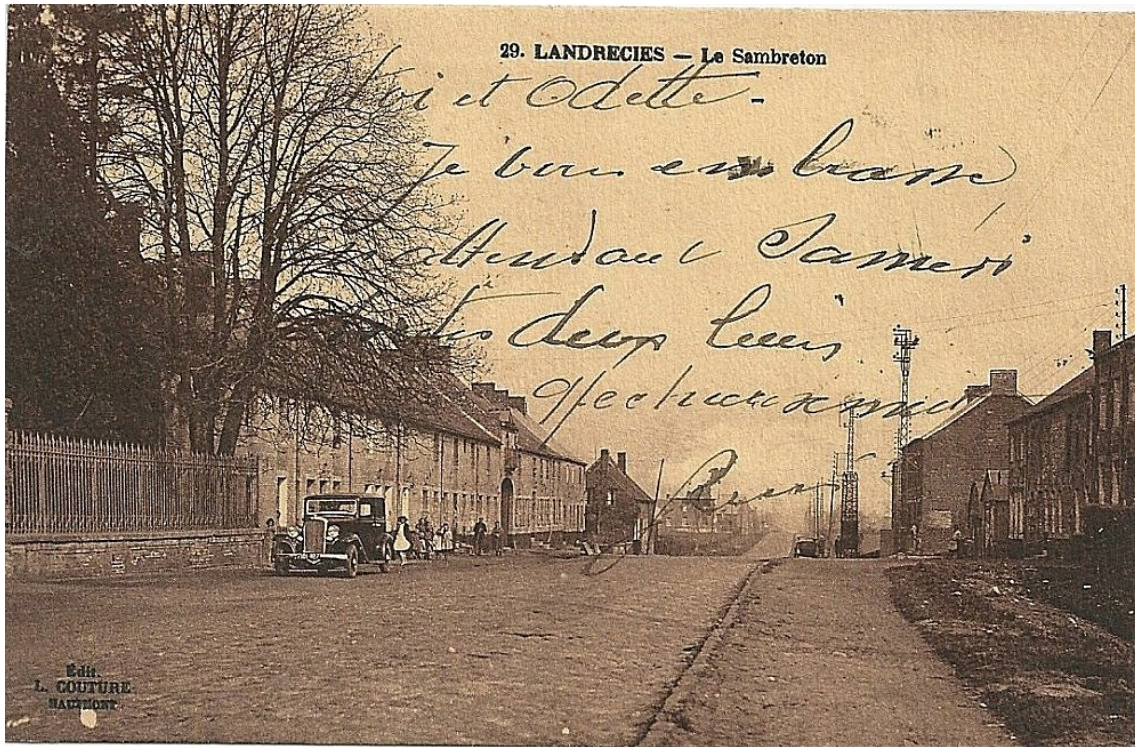 29. LANDRECIES — Le Sambreton
et Odette -
Je vous embrasse
attendant Samedi
deux
affectueusement
Édit.
L. COUTURE
HAUTMONT